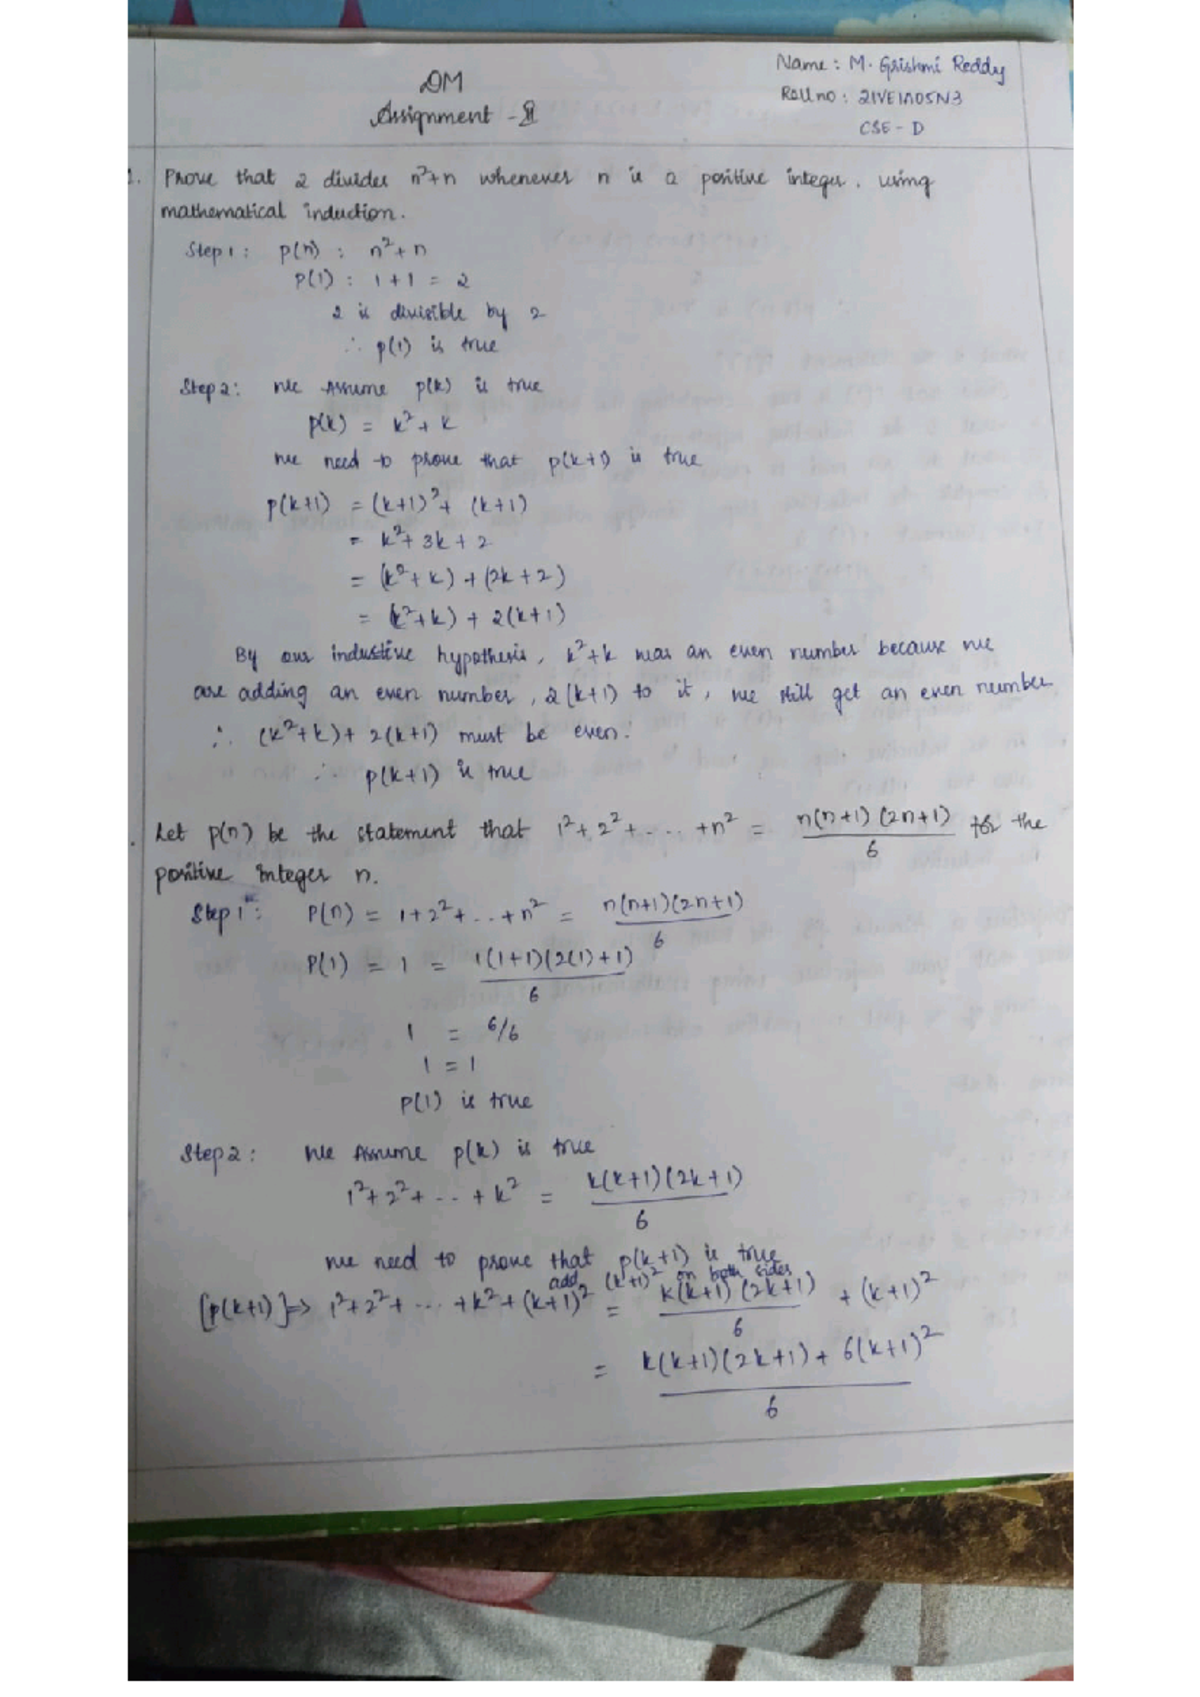 Name : M. Grishmi Reddy
DM
Roll no : 21VE1A05N3
Assignment -
CSE - D
1. Prove that 2 divides n²+n whenever n is a positive integer. using
mathematical induction.
Step 1 : p(n) : n²+n
p(1) : 1+1 = 2
2 is divisible by 2
∴ p(1) is true
Step 2 : We Assume p(k) is true
p(k) = k²+k
we need to prove that p(k+1) is true
p(k+1) = (k+1)²+ (k+1)
= k²+3k+2
= (k²+k)+(2k+2)
= (k²+k) + 2(k+1)
By our inductive hypothesis, k²+k was an even number because we
are adding an even number, 2(k+1) to it, we still get an even number
∴ (k²+k)+ 2(k+1) must be even.
∴ p(k+1) is true
. Let p(n) be the statement that 1²+2²+.....+n² = n(n+1)(2n+1)/6 for the
positive integer n.
Step 1 : P(n) = 1+2²+...+n² = n(n+1)(2n+1)/6
P(1) = 1 = 1(1+1)(2(1)+1)/6
1 = 6/6
1 = 1
P(1) is true
Step 2 : We Assume p(k) is true
1²+2²+...+k² = k(k+1)(2k+1)/6
we need to prove that p(k+1) is true
add (k+1)² on both sides
[p(k+1)]=> 1²+2²+...+k²+(k+1)² = k(k+1)(2k+1)/6 + (k+1)²
= k(k+1)(2k+1)+6(k+1)²/6